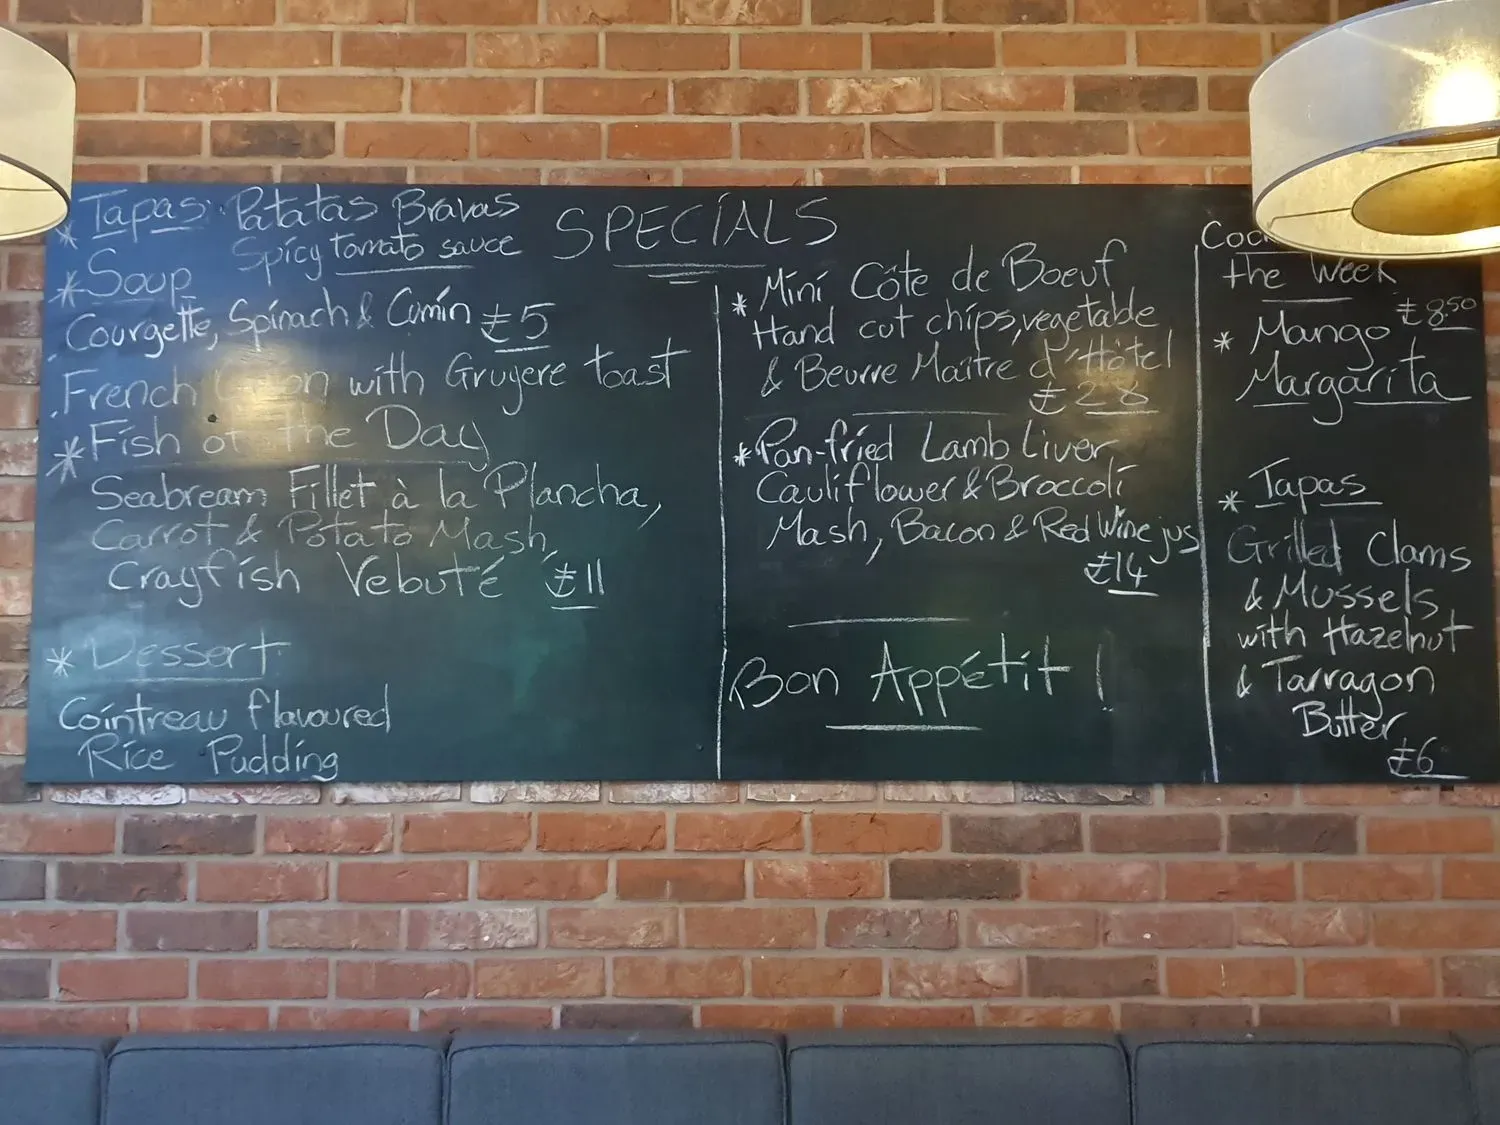 SPECIALS
* Tapas: Patatas Bravas
Spicy tomato sauce
* Soup
Courgette, Spinach & Cumin £5
French Onion with Gruyere toast
* Fish of the Day
Seabream Fillet à la Plancha,
Carrot & Potato Mash,
Crayfish Vebuté £11
* Dessert
Cointreau flavoured
Rice Pudding
* Mini Côte de Boeuf
Hand cut chips, vegetable
& Beurre Maître d'Hôtel
£28
* Pan-fried Lamb Liver,
Cauliflower & Broccoli
Mash, Bacon & Red Wine jus
£14
Bon Appétit !
the Week
£8.50
* Mango
Margarita
* Tapas
Grilled Clams
& Mussels
with Hazelnut
& Tarragon
Butter
£6